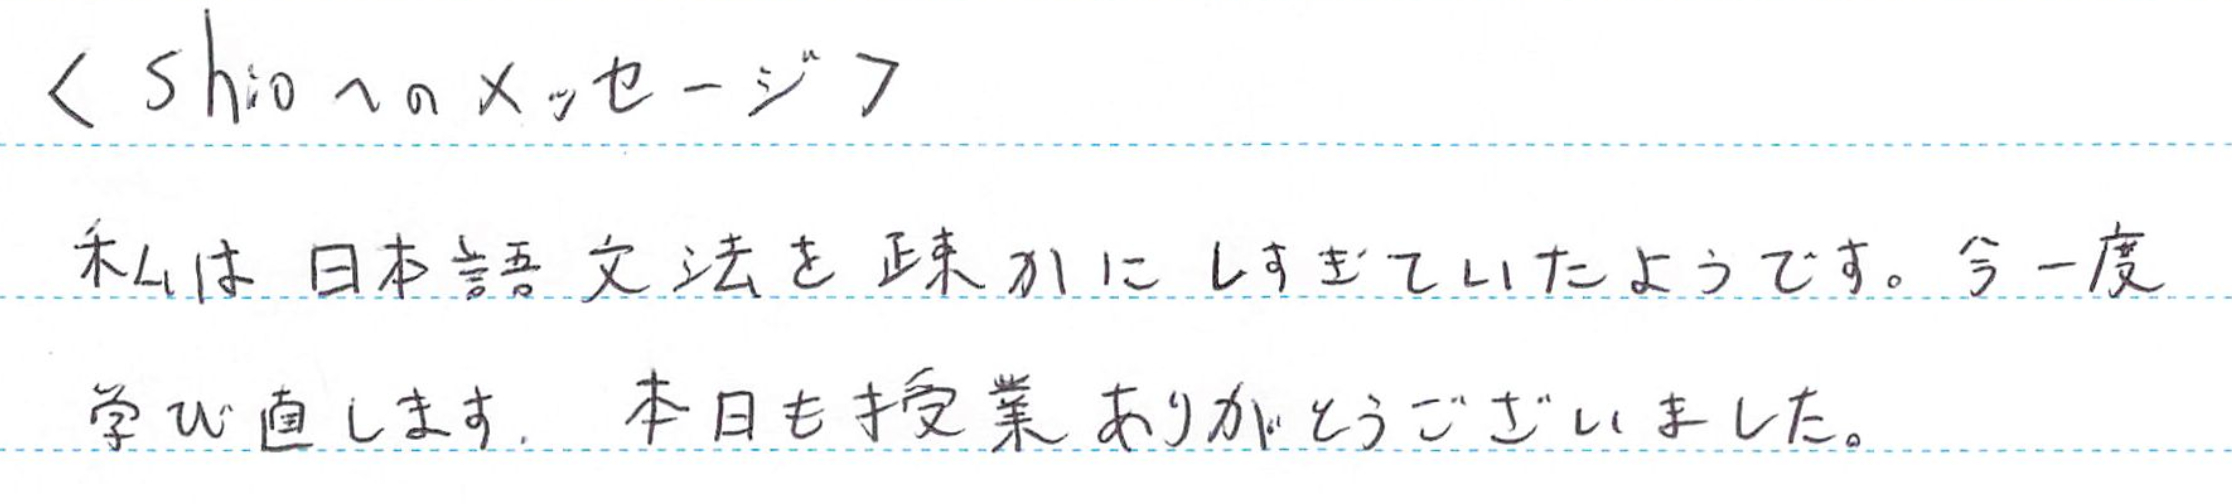 <shioへのメッセージ>
私は日本語文法を疎かにしすぎていたようです。今一度
学び直します. 本日も授業ありがとうございました。